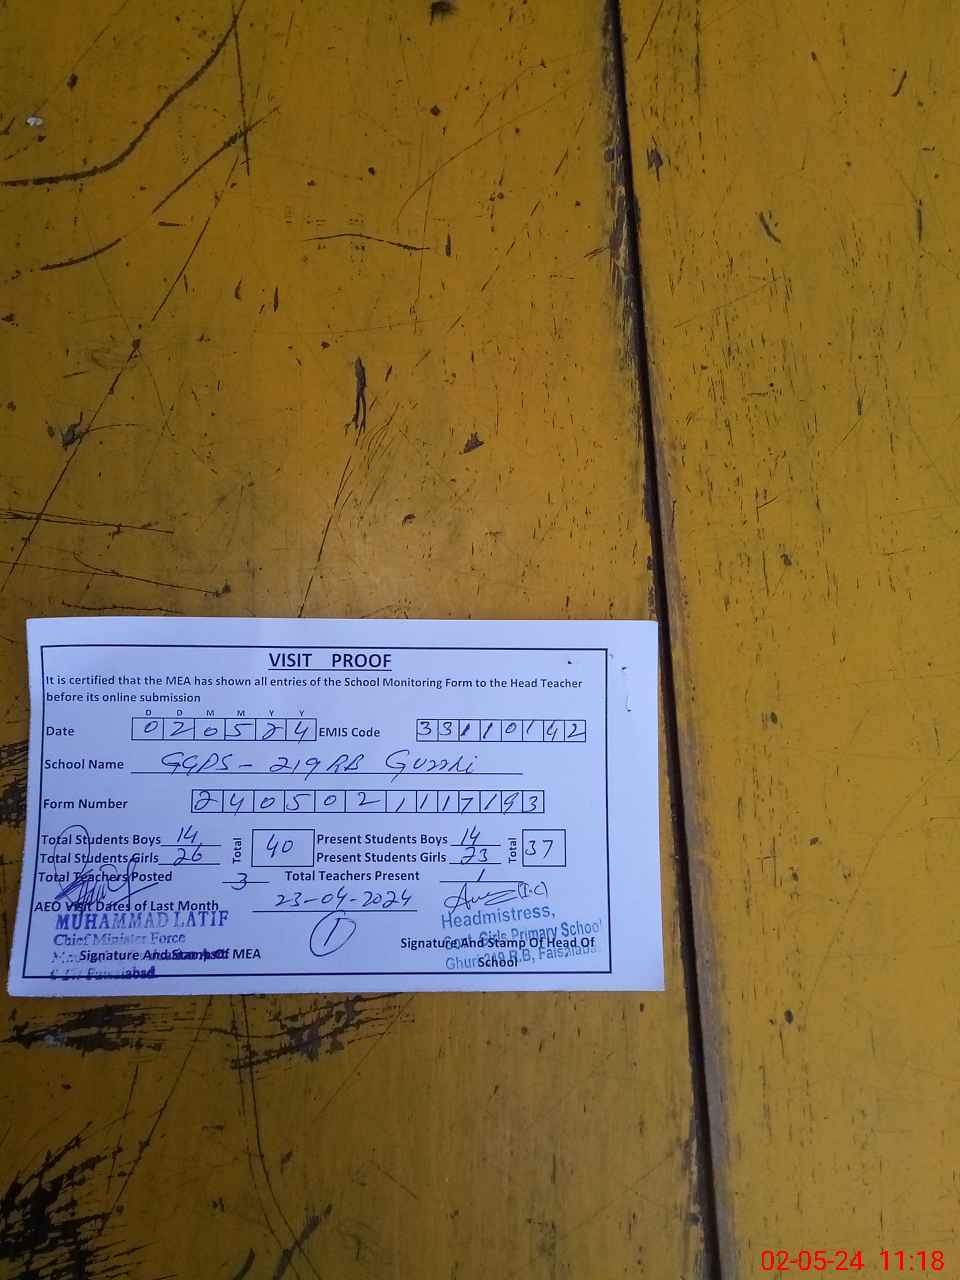 VISIT PROOF
It is certified that the MEA has shown all entries of the School Monitoring Form to the Head Teacher
before its online submission
D D M M Y Y
Date 0 2 0 5 2 4 EMIS Code 3 3 1 1 0 1 4 2
School Name GGPS - 219 RB Gurrhi
Form Number 2 4 0 5 0 2 1 1 1 7 1 9 3
Total Students Boys 14 Total 40 Present Students Boys 14 Total 37
Total Students Girls 26 Present Students Girls 23
Total Teachers Posted 3 Total Teachers Present 1
AEO Visit Dates of Last Month 23-04-2024
(I.C)
MUHAMMAD LATIF
Chief Minister Force
1
Headmistress,
Govt. Girls Primary School
219 R.B, Faisalabad
Signature And Stamp Of MEA
Signature And Stamp Of Head Of
School
Faisalabad
02-05-24 11:18